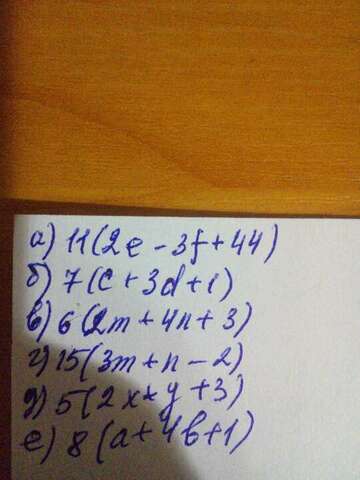 а) 11(2e - 3f + 44)
б) 7(c + 3d + 1)
в) 6(2m + 4n + 3)
г) 15(3m + n - 2)
д) 5(2x + y + 3)
е) 8(a + 4b + 1)